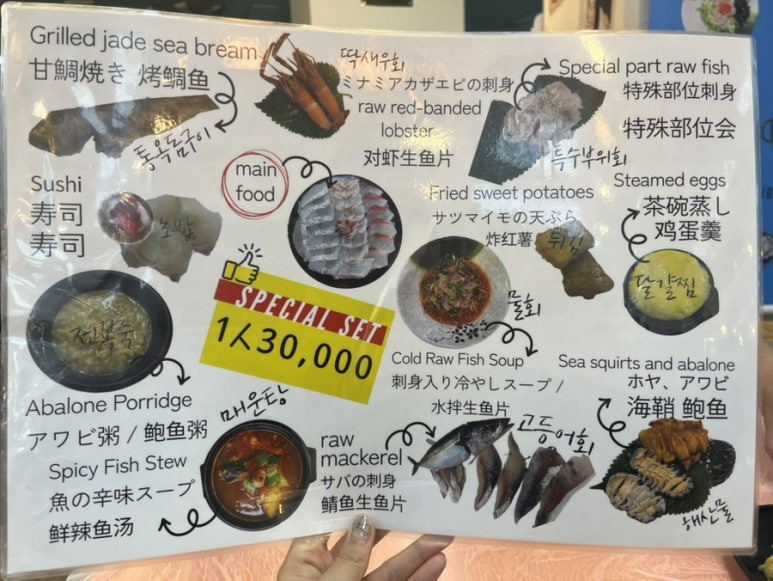 Grilled jade sea bream
甘鯛焼き 烤鲷鱼
통옥돔구이
딱새우회
ミナミアカザエビの刺身
raw red-banded
lobster
对虾生鱼片
Special part raw fish
特殊部位刺身
特殊部位会
특수부위회
Sushi
寿司
寿司
초밥
main
food
Fried sweet potatoes
サツマイモの天ぷら
炸红薯
튀김
Steamed eggs
茶碗蒸し
鸡蛋羹
달걀찜
전복죽
Abalone Porridge
アワビ粥 / 鲍鱼粥
SPECIAL SET
1人30,000
물회
Cold Raw Fish Soup
刺身入り冷やしスープ /
水拌生鱼片
Sea squirts and abalone
ホヤ、アワビ
海鞘 鲍鱼
해산물
매운탕
Spicy Fish Stew
魚の辛味スープ
鲜辣鱼汤
raw
mackerel
サバの刺身
鲭鱼生鱼片
고등어회